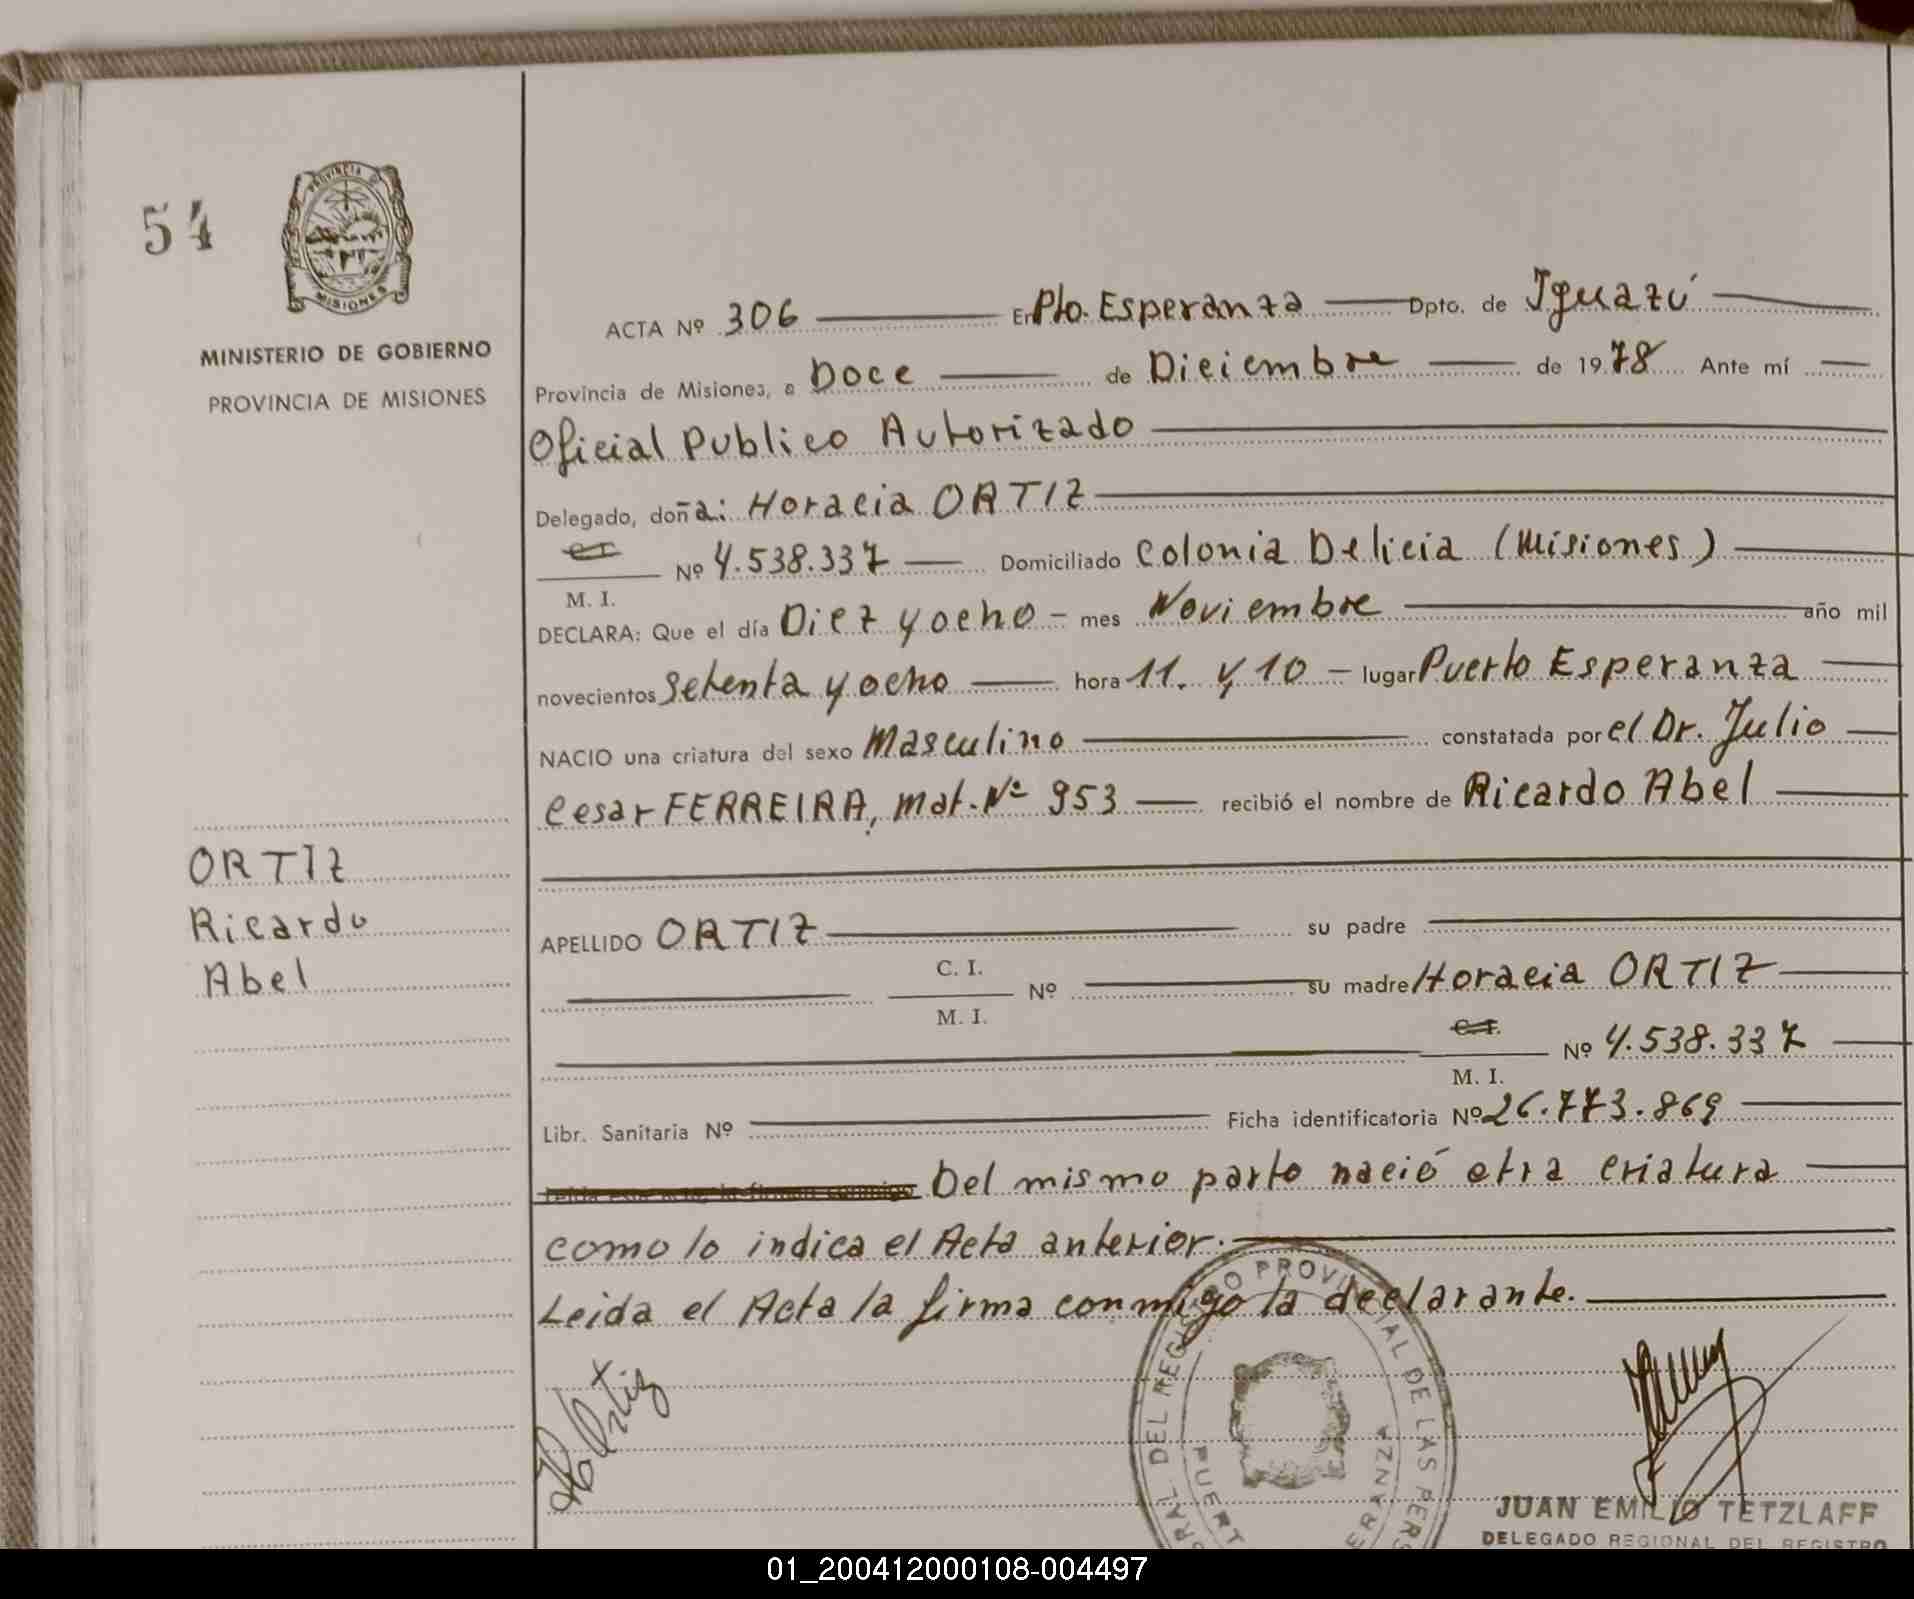 54
PROVINCIA D
MISIONES
MINISTERIO DE GOBIERNO
PROVINCIA DE MISIONES
ACTA Nº 306 En Pto. Esperanza Dpto. de Iguazú
Provincia de Misiones, a Doce de Diciembre de 1978 Ante mí
Oficial Publico Autorizado
Delegado, doña: Horacia ORTIZ
C.I.
M. I. Nº 4.538.337 Domiciliado Colonia Delicia (Misiones)
DECLARA: Que el día Diez y ocho - mes Noviembre año mil
novecientos Setenta y ocho hora 11. y 10 - lugar Puerto Esperanza
NACIO una criatura del sexo Masculino constatada por el Dr. Julio
Cesar FERREIRA, Mat. Nº 953 recibió el nombre de Ricardo Abel
ORTIZ
Ricardo
Abel
APELLIDO ORTIZ su padre
C. I.
M. I. Nº su madre Horacia ORTIZ
C.I.
M. I. Nº 4.538.337
Libr. Sanitaria Nº Ficha identificatoria Nº 26.773.869
Del mismo parto nació otra criatura
como lo indica el Acta anterior.
Leida el Acta la firma conmigo la declarante.
H Ortiz
RAL DEL REGISTRO PROVINCIAL DE LAS PERS
PUERT ERANZA
JUAN EMILIO TETZLAFF
DELEGADO REGIONAL DEL REGISTRO
01_200412000108-004497